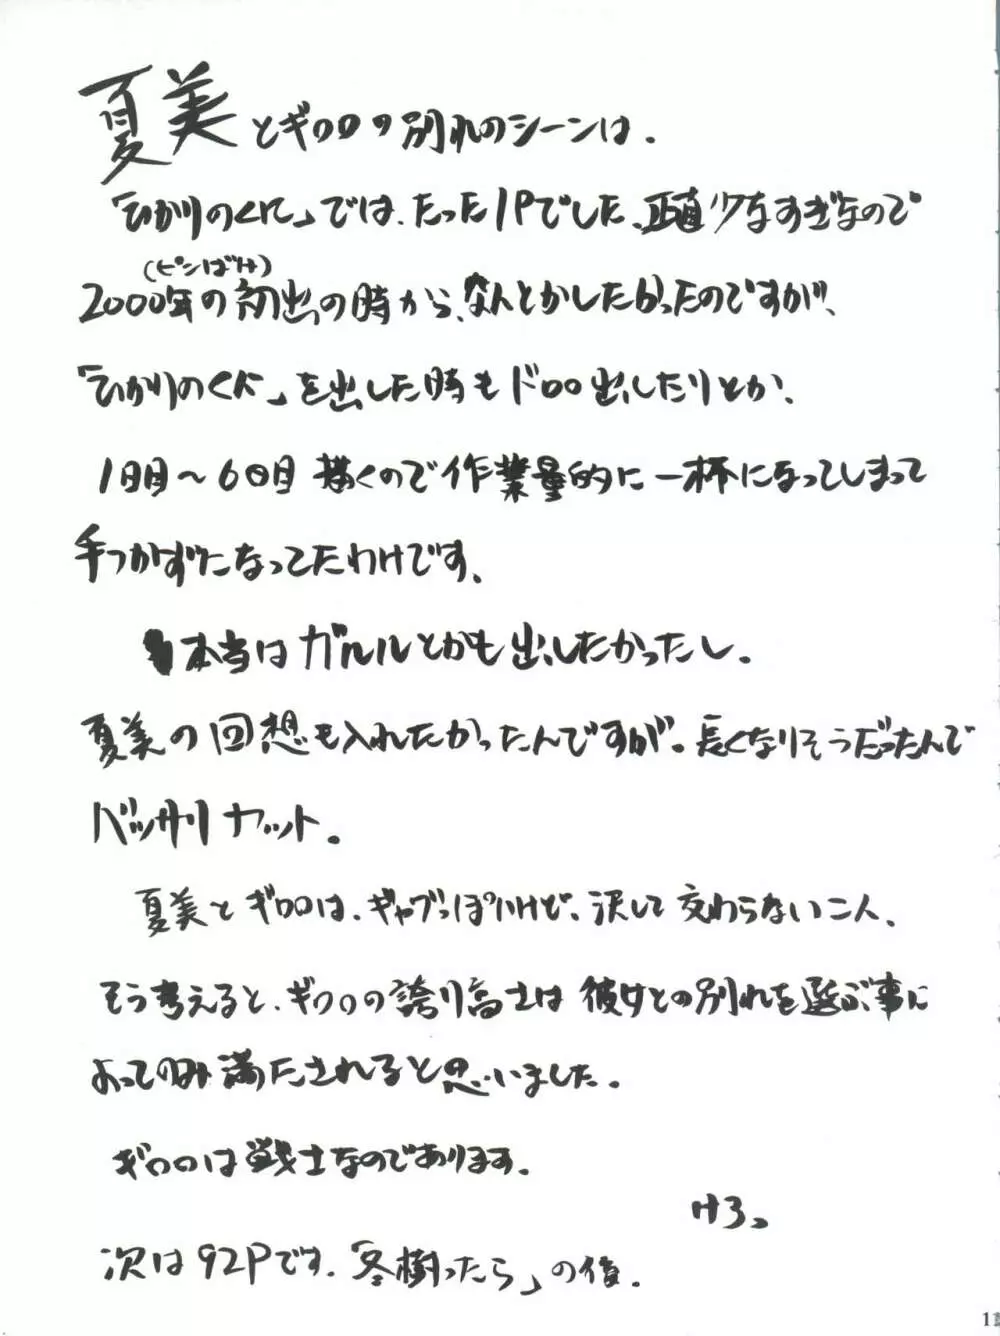 夏美とギロロの別れのシーンは.
「ひかりのくに」では、たった1Pでした、正直少なすぎなので
(ピンぼけ)
2000年の初出の時から、なんとかしたかったのですが、
「ひかりのくに」を出した時もドロロ出したりとか、
1日目〜6日目 描くので作業量的に一杯になってしまって
手つかずになってたわけです、
本当はガルルとかも出したかったし.
夏美の回想も入れたかったんですが。長くなりそうだったんで
バッサリカット。
夏美とギロロは、ギャグっぽいけど、決して交わらない二人.
そう考えると、ギロロの誇り高さは彼女との別れを選ぶ事に
よってのみ満たされると思いました.
ギロロは戦士なのであります.
けろっ
次は92Pです.「冬樹ったら」の後.
11